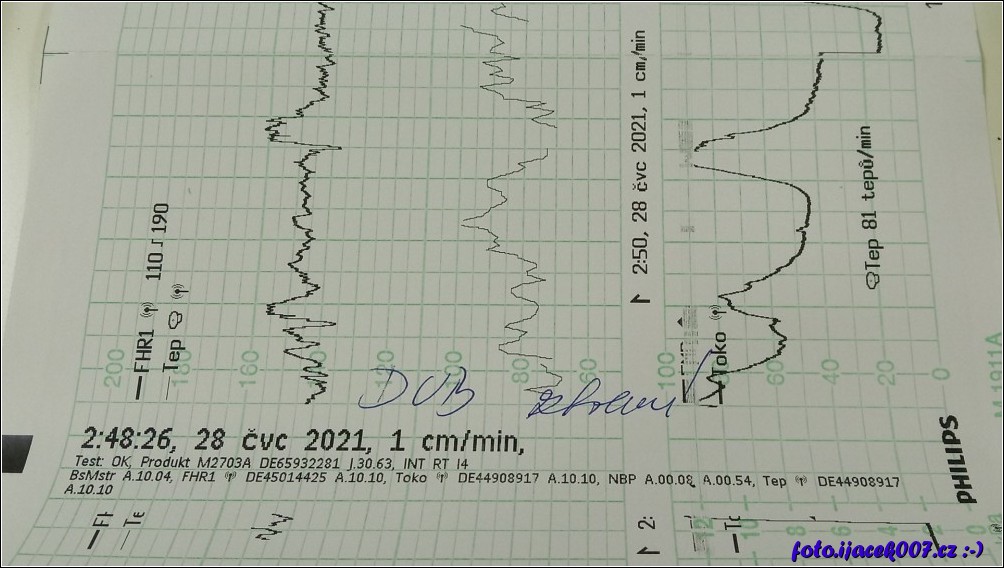 FHR1 110 190
Tep
200 180 160 140 120 100 80 60
DVB
2:48:26, 28 čvc 2021, 1 cm/min,
Test: OK, Produkt M2703A DE65932281 J.30.63, INT RT I4
BsMstr A.10.04, FHR1 DE45014425 A.10.10, Toko DE44908917 A.10.10, NBP A.00.08, A.00.54, Tep DE44908917
A.10.10
2:50, 28 čvc 2021, 1 cm/min
Toko
Tep 81 tepů/min
100 80 60 40 20 0
PHILIPS
2:
12 10 8 6 4 2 0
foto.ijacek007.cz :-)